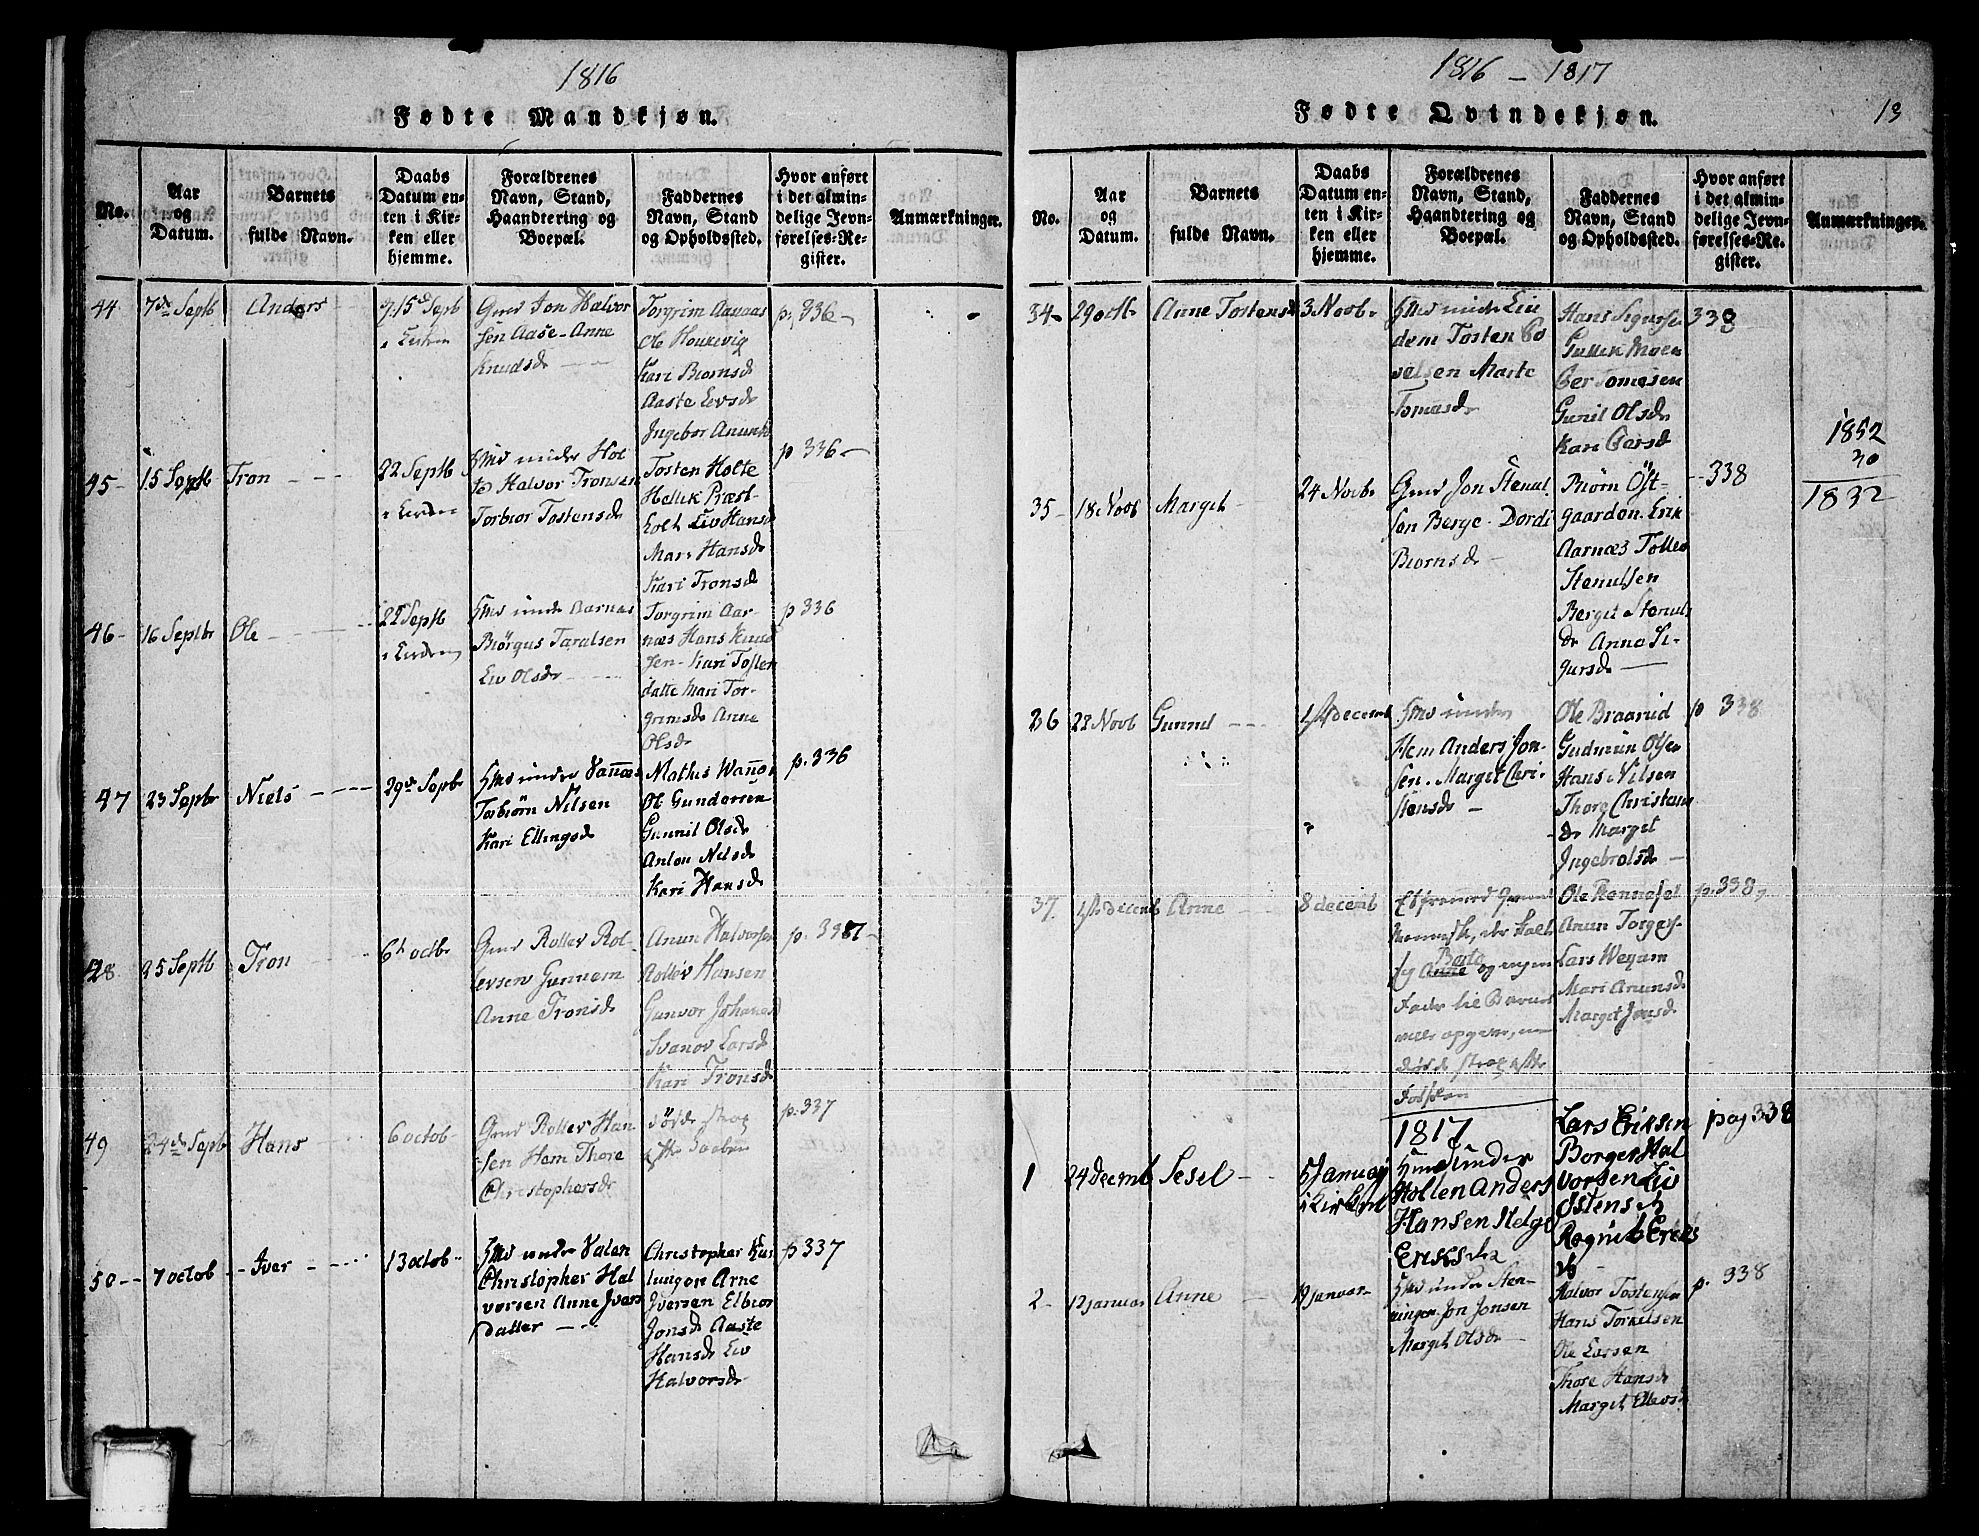 1816
Fødte Mandkjøn.
No.
Aar
og
Datum.
Barnets
fulde Navn.
Daabs
Datum en-
ten i Kir-
ken eller
hjemme.
Forældrenes
Navn, Stand,
Haandtering og
Boepæl.
Faddernes
Navn, Stand
og Opholdssted.
Hvor anført
i det almin-
delige Jevn-
førelses-Re-
gister.
Anmærkninger.
44
7de Septb
Anders
15d Septb
Gmd Jon Halvor
sen Aase - Anne
Knudsdr
Torgrim Aanaas
Ole Houkevig
Kari Biornsdr
Aaste Levsdr
Ingebor Anunsdr
p. 336
45
15 Septb
Tron
22 Septb
Hmd under Hol
te Halvor Tronsen
Torbior Tostensdr
Tosten Holte
Hellik Præst-
holt Liv Hansdr
Mari Hansdr
Kari Tronsdr
p 336
46
16 Septbr
Ole
22 Septb
Hmd unde Aarnas
Biörgus Taralsen
Liv Olsdr
Torgrim Aar-
næs Hans Knud
sen - Kari Tosten
datte Mari Tor-
grimsdr Anne
Olsdr
p 336
47
23 Septbr
Niels
29de Septbr
Hmd under Vaňæs
Torbiörn Nilsen
Kari Ellingsdr
Mathis Waňæs
Ole Gundersen
Gunnil Olsdr
Anlou Nilsdr
Kari Hansdr
p. 336
48
25 Septb
Tron
6h octbr
Gmd Rollev Rol-
levsen Gunnem
Anne Tronsdr
Anun Halvorsen
Rollev Hansen
Gunvor Johanns
Svanov Larsdr
Kari Tronsdr
p. 337
49
24de Septb
Hans
6 octob
Gmd Rollev Han
sen Hem Thore
Christophersdr
döde strax
efter Daaben
p. 337
50
7 octob
Iver
13 octob
Hmd under Valen
Christopher Hal
vorsen Anne Ivers
datter
Christopher Kas
lungen Arne
Iversen Elbior
Jonsdr Aaste
Hansdr Liv
Halvorsdr
p 337
1816 - 1817
13
Fødte Qvindekjøn.
No.
Aar
og
Datum.
Barnets
fulde Navn.
Daabs
Datum en-
ten i Kir-
ken eller
hjemme.
Forældrenes
Navn, Stand,
Haandtering og
Boepæl.
Faddernes
Navn, Stand
og Opholdssted.
Hvor anført
i det almin-
delige Jevn-
førelses-Re-
gister.
Anmærkninger.
34
29 octb
Anne Tostensd
3 Novb
Hmd under Liv
dem Tosten
Marte
Tomasdr
Hans Sigursen
Gullik Moen
Tomesen
Gunil Olsdr
Kari
338
35
18 Novb
Margit
24 Novbr
Gmd Jon Stenul
sen Berge - Dordi
Biornsdr
Biörn Öst-
gaarden. Erik
Aarnæs Tollev
Stenulsen
Bergit Stenuls
dr Anne Si-
gursdr
338
1852
20
1832
36
22 Novb
Gunnil
1ste decemb
Hmd under
Hem Anders Jon-
sen. Margit Chri-
stensdr
Ole Braarud
Gudmun Olsen
Hans Nilsen
Thorg Christens
dr Margit
Ingebrotsdr
p 338
37
1ste decemb
Anne
8 decemb
Et fremmed Qvinde
Menniske, der kald
sig Anne Berte og ingen
Fader til Barnet
ville opgive,
döde strax efter
Fødselen
Ole Rennesel
Anun Torgers
Lars Wegam
Mari Anunsdr
Margit Jonsdr
p. 338
1817
1
24 decemb
Sesel
5 Januarj
i Kirken
Hmd under
Holten Anders
Hansen Helge
Eriksdr
Lars Eriksen
Borger Hal
vorsen Liv
Østensd
Ragnil Eriks
dr
pag 338
2
12 januar
Anne
19 januar
Hmd under Sten-
ningen Jon Jonsen
Margit Olsdr
Halvor Tostensen
Hans Torkelsen
Ole Larsen
Thore Hansdr
Margit Ellevsd
p. 338